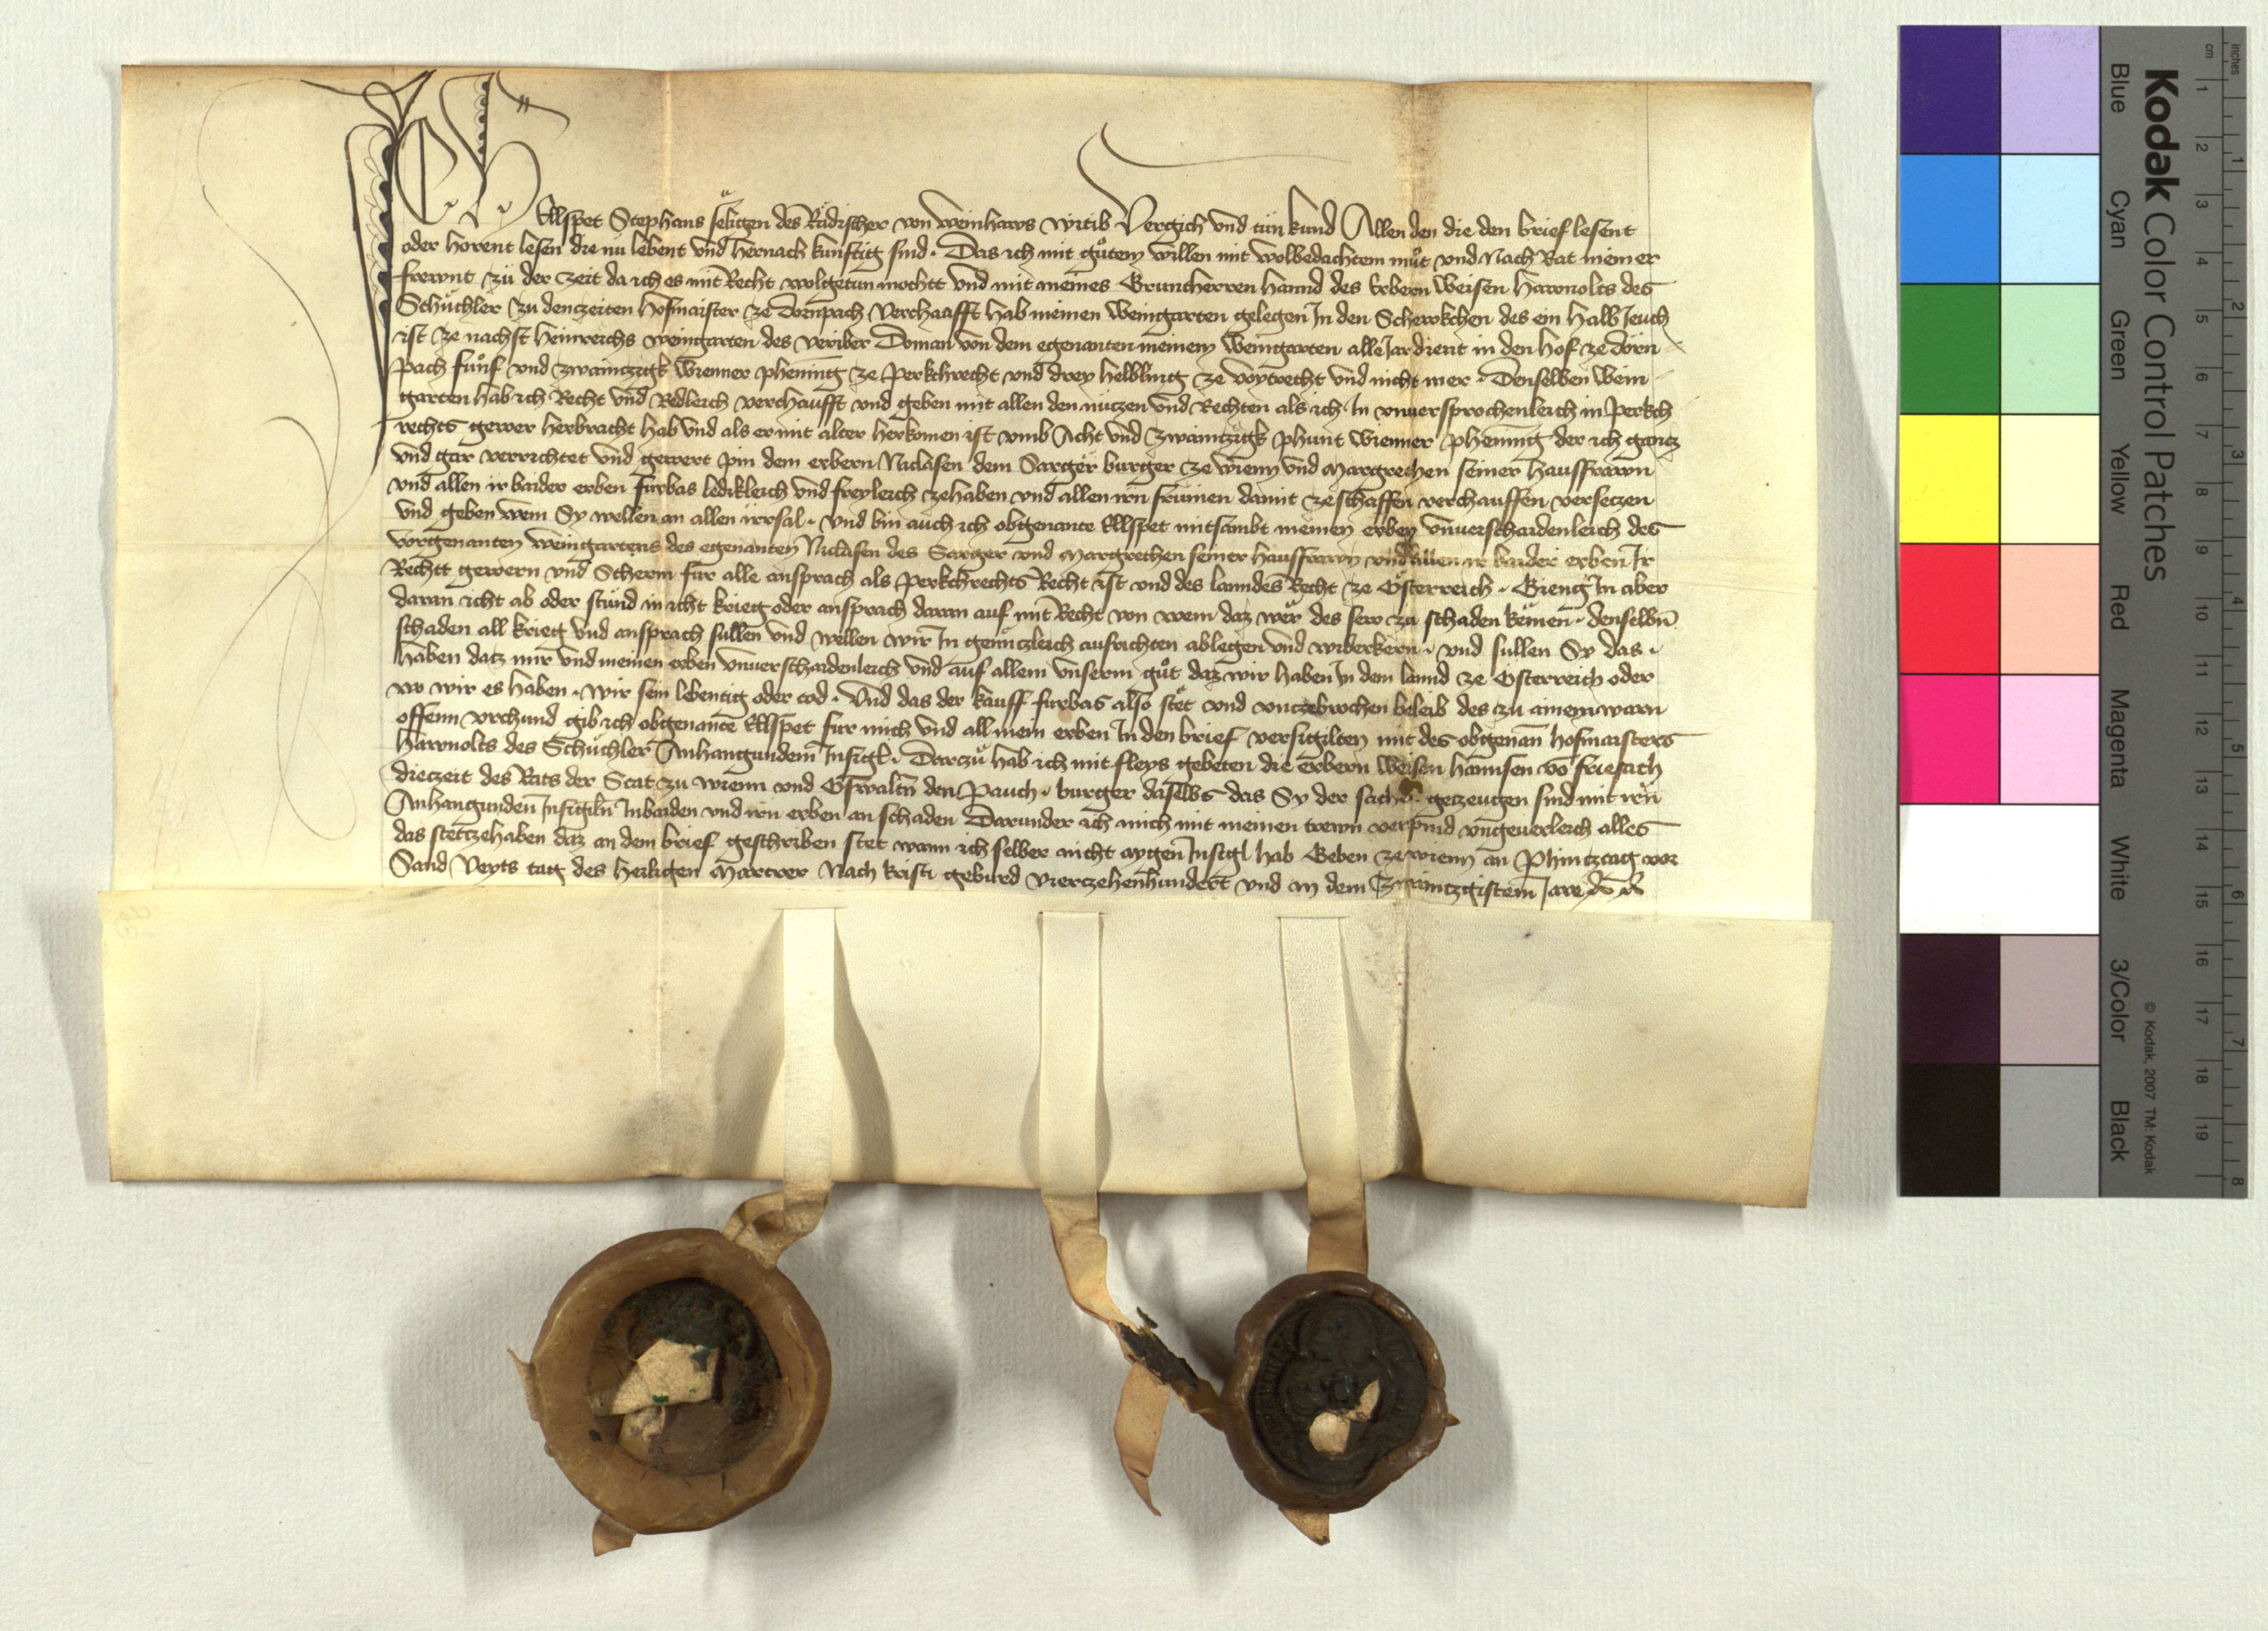 Ich Ellspet Stephans seligen des Rüdischer von Weinhaws witib Vergich und tün kund Allen den die den brief lesent
oder horent lesen die nu lebent vnd hernach kunftig sind · Das ich mit gůtem willen mit wolbedachtem můt vnd Nach Rat meiner
frewnt zü der zeit da ich es mit Recht wolgetun mocht vnd mit meines Gruntherren hannd des Erbern Weisen Hawnolts des
Schůchler zu denczeiten hofmaister ze Dornpach Verchaufft hab meinen Weingarten gelegen In den Scherokchen des ein halb Jeuch
ist ze nachst Heinreichs weingarten des Veriber Doman von dem egenanten meinem Weingarten alle Jar dient in den hof ze dorn
pach fůnf vnd zwainczigk Wienner phening ze perkchrecht vnd drey helbling ze voytrecht vnd nicht mer · Denselben Wein
garten hab ich Recht vnd Redleich verchaufft vnd geben mit allen den nüczen vnd Rechten als ich In vnuersprochenleich in perkch
rechts gewer herbracht hab vnd als er mit alter herkomen ist vmb Acht vnd zwainczigk phunt Wienner phening der ich gancz
vnd gar verrichtet vnd gewert pin dem erbern Niclasen dem Sarger burger ze wienn vnd Margrethen seiner hausfrawn
vnd allen ir baider erben furbas ledikleich vnd freyleich zehaben vnd allen irn frumen damit zeschaffen verchauffen verseczen
vnd geben wem Sy wellen an allen irrsal · vnd bin auch ich obgenante Ellspet mitsambt meinen erben vnuerschaidenleich des
vorgenanten weingartens des egenanten Niclasen des Sarger vnd Margrethen seiner hausfrawn vnd allen ir baider erben Ir
Rechtt gewern vnd Scherm für alle ansprach als perkchrechts Recht ist vnd des lanndes Recht ze Österreich · Gieng In aber
daran icht ab oder stünd in icht krieg oder ansprach daran auf mit Recht von wem daz wer des sew zu schaden kemen · denselbn
schaden all krieg vnd ansprach sullen vnd wellen wir In genczleich ausrichten ablegen vnd widerkern · vnd sullen Sy das ·
haben datz mir vnd meinen erben vnuerschaidenleich vnd auf allem vnserm gůt daz wir haben In dem lannd ze Osterreich oder
wo wir es haben · wir sein lebentig oder tod · Vnd das der kauff furbas also stet vnd vnczebrochen beleib des zu ainem warn
offenn vrchund gib ich obgenante Ellspet fur mich vnd all mein erben In den brief versigilten mit des obgenan hofmaisters
Hawnolts des Schůchler Anhangundem Insigl · Darczů hab ich mit fleys gebeten die Erbern Weisen Hannsen vo friesach
dieczeit des Rats der Stat zu wienn vnd Oswaltn den Pauch · burger daselbs das Sy der sach geczeugen sind mit irn
Anhangunden Insigiln Inbaiden vnd irn erben an schaden Darunder ich mich mit meinen trewn verpind vngeuerleich alles
das stet zehaben daz an dem brief geschriben stet wann ich selber nicht aygen Insigl hab Geben ze wienn an Phincztag vor
Sand Veyts tag des heiligen Martrer Nach kristi geburd vierczehenhundert vnd an dem Zwainczgistem Jare
Kodak Color Control Patches
© Kodak, 2007 TM: Kodak
Blue Cyan Green Yellow Red Magenta White 3/Color Black
cm 1 2 3 4 5 6 7 8 9 10 11 12 13 14 15 16 17 18 19
inches 1 2 3 4 5 6 7 8